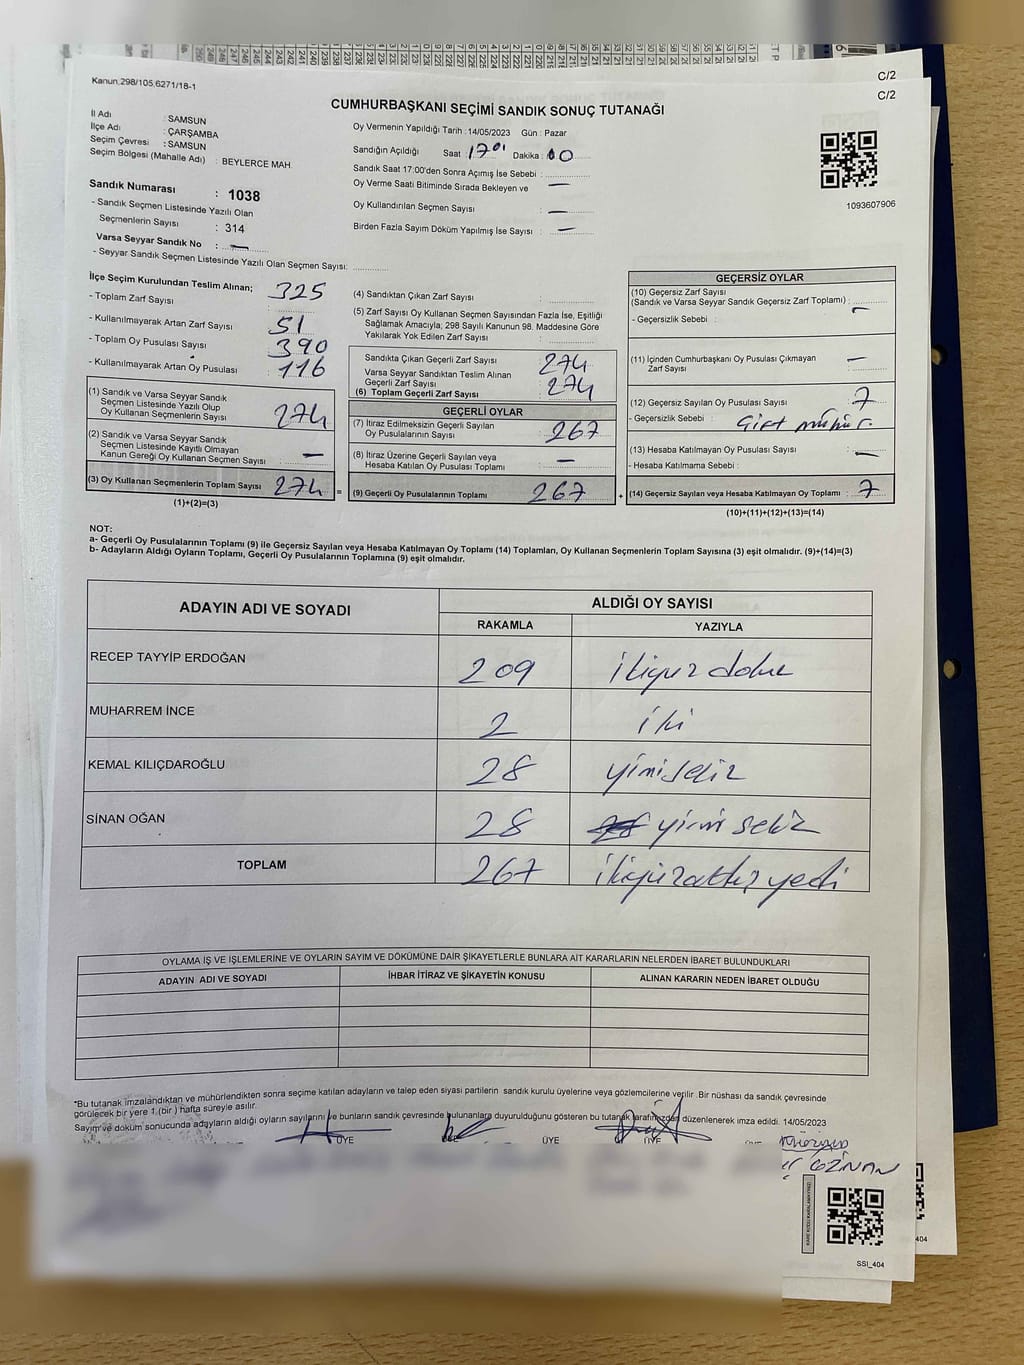 C/2
Kanun.298/105,6271/18-1
C/2
CUMHURBAŞKANI SEÇİMİ SANDIK SONUÇ TUTANAĞI
İl Adı : SAMSUN
İlçe Adı : ÇARŞAMBA
Seçim Çevresi : SAMSUN
Seçim Bölgesi (Mahalle Adı) : BEYLERCE MAH.
Sandık Numarası : 1038
- Sandık Seçmen Listesinde Yazılı Olan
Seçmenlerin Sayısı : 314
Varsa Seyyar Sandık No : —
- Seyyar Sandık Seçmen Listesinde Yazılı Olan Seçmen Sayısı:
Oy Vermenin Yapıldığı Tarih : 14/05/2023 Gün : Pazar
Sandığın Açıldığı Saat : 17 Dakika :
Sandık Saat 17:00'den Sonra Açımış İse Sebebi :
Oy Verme Saati Bitiminde Sırada Bekleyen ve —
Oy Kullandırılan Seçmen Sayısı : —
Birden Fazla Sayım Döküm Yapılmış İse Sayısı : —
1093607906
İlçe Seçim Kurulundan Teslim Alınan;
- Toplam Zarf Sayısı : 325
- Kullanılmayarak Artan Zarf Sayısı : 51
- Toplam Oy Pusulası Sayısı : 390
- Kullanılmayarak Artan Oy Pusulası : 116
(1) Sandık ve Varsa Seyyar Sandık
Seçmen Listesinde Yazılı Olup
Oy Kullanan Seçmenlerin Sayısı : 274
(2) Sandık ve Varsa Seyyar Sandık
Seçmen Listesinde Kayıtlı Olmayan
Kanun Gereği Oy Kullanan Seçmen Sayısı : —
(3) Oy Kullanan Seçmenlerin Toplam Sayısı : 274
(1)+(2)=(3)
(4) Sandıktan Çıkan Zarf Sayısı :
(5) Zarf Sayısı Oy Kullanan Seçmen Sayısından Fazla İse, Eşitliği
Sağlamak Amacıyla; 298 Sayılı Kanunun 98. Maddesine Göre
Yakılarak Yok Edilen Zarf Sayısı :
Sandıkta Çıkan Geçerli Zarf Sayısı : 274
Varsa Seyyar Sandıktan Teslim Alınan
Geçerli Zarf Sayısı :
(6) Toplam Geçerli Zarf Sayısı : 274
GEÇERLİ OYLAR
(7) İtiraz Edilmeksizin Geçerli Sayılan
Oy Pusulalarının Sayısı : 267
(8) İtiraz Üzerine Geçerli Sayılan veya
Hesaba Katılan Oy Pusulası Toplamı : —
= (9) Geçerli Oy Pusulalarının Toplamı : 267
GEÇERSİZ OYLAR
(10) Geçersiz Zarf Sayısı
(Sandık ve Varsa Seyyar Sandık Geçersiz Zarf Toplamı) :
- Geçersizlik Sebebi : —
(11) İçinden Cumhurbaşkanı Oy Pusulası Çıkmayan
Zarf Sayısı : —
(12) Geçersiz Sayılan Oy Pusulası Sayısı : 7
- Geçersizlik Sebebi : Çift mühür.
(13) Hesaba Katılmayan Oy Pusulası Sayısı : —
- Hesaba Katılmama Sebebi :
+ (14) Geçersiz Sayılan veya Hesaba Katılmayan Oy Toplamı : 7
(10)+(11)+(12)+(13)=(14)
NOT:
a- Geçerli Oy Pusulalarının Toplamı (9) ile Geçersiz Sayılan veya Hesaba Katılmayan Oy Toplamı (14) Toplamları, Oy Kullanan Seçmenlerin Toplam Sayısına (3) eşit olmalıdır. (9)+(14)=(3)
b- Adayların Aldığı Oyların Toplamı, Geçerli Oy Pusulalarının Toplamına (9) eşit olmalıdır.
ADAYIN ADI VE SOYADI ALDIĞI OY SAYISI
RAKAMLA YAZIYLA
RECEP TAYYİP ERDOĞAN 209 ikiyüz dokuz
MUHARREM İNCE 2 iki
KEMAL KILIÇDAROĞLU 28 yimisekiz
SİNAN OĞAN 28 yirmi sekiz
TOPLAM 267 ikiyüzaltmış yedi
OYLAMA İŞ VE İŞLEMLERİNE VE OYLARIN SAYIM VE DÖKÜMÜNE DAİR ŞİKAYETLERLE BUNLARA AİT KARARLARIN NELERDEN İBARET BULUNDUKLARI
ADAYIN ADI VE SOYADI İHBAR İTİRAZ VE ŞİKAYETİN KONUSU ALINAN KARARIN NEDEN İBARET OLDUĞU
"Bu tutanak imzalandıktan ve mühürlendikten sonra seçime katılan adayların ve talep eden siyasi partilerin sandık kurulu üyelerine veya gözlemcilerine verilir. Bir nüshası da sandık çevresinde
görülecek bir yere 1 (bir ) hafta süreyle asılır.
Sayım ve döküm sonucunda adayların aldığı oyların sayılarını ve bunların sandık çevresinde bulunanlara duyurulduğunu gösteren bu tutanak tarafımızdan düzenlenerek imza edildi. 14/05/2023
ÜYE ÜYE ÜYE
SSI_404
404